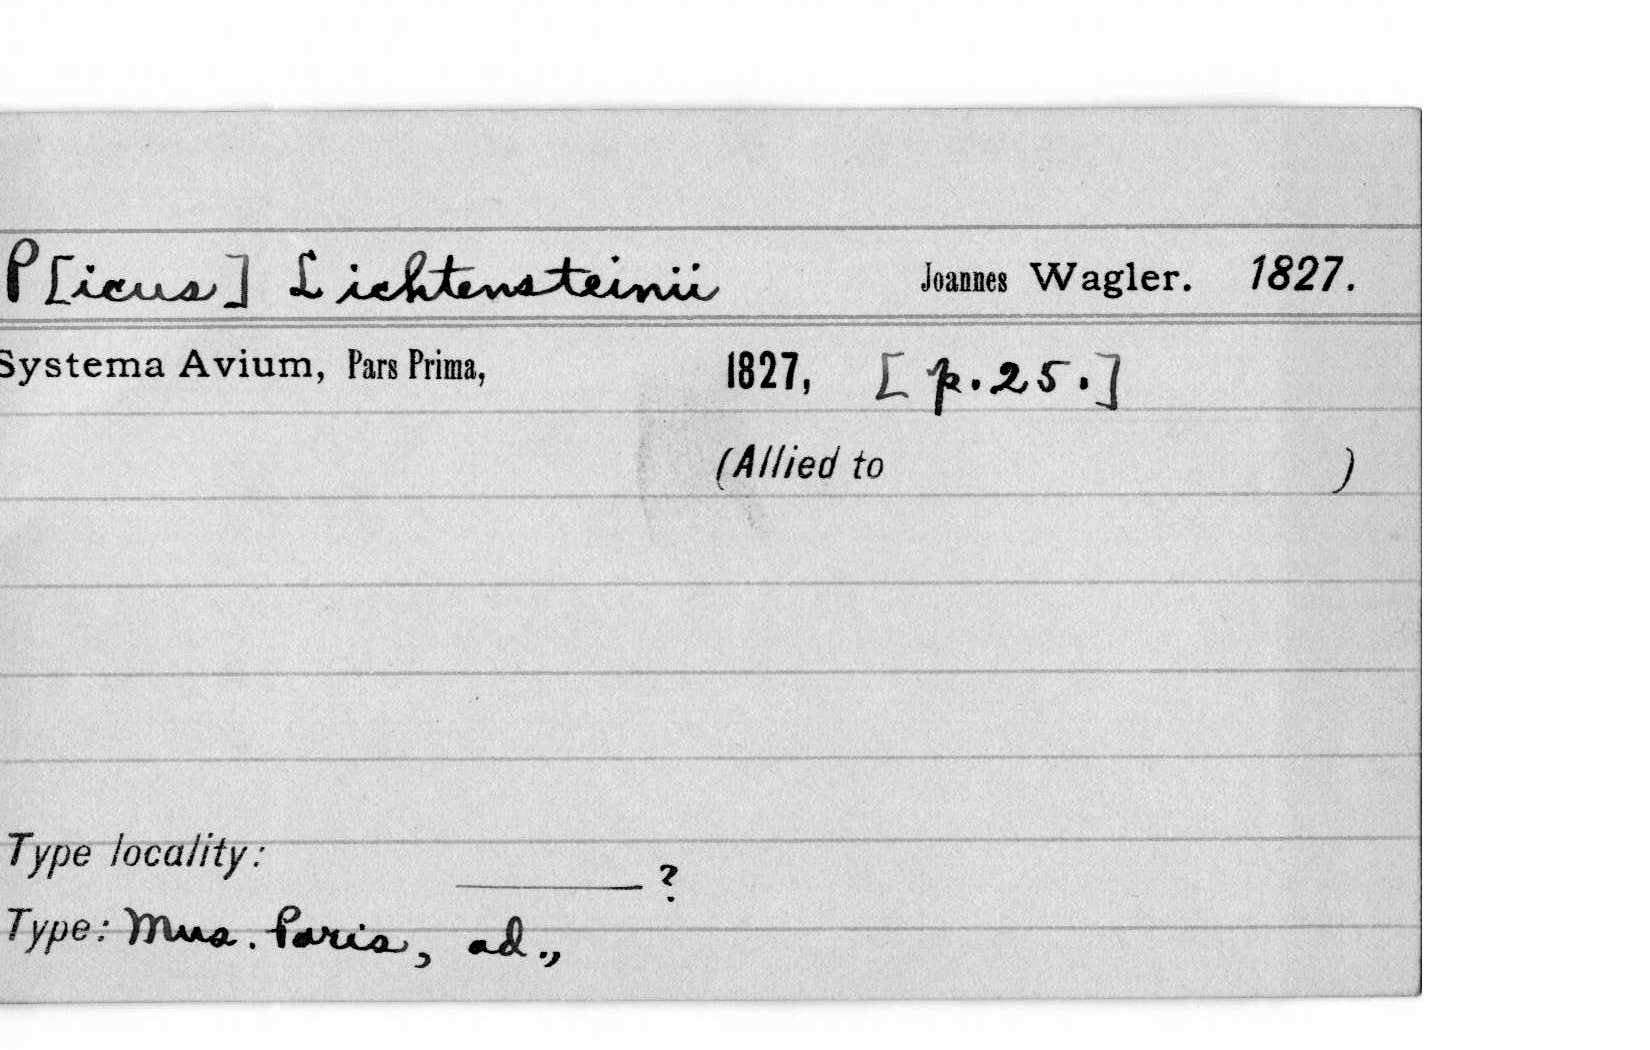 P[icus] Lichtensteinii Joannes Wagler. 1827.
Systema Avium, Pars Prima, 1827, [p.25.]
(Allied to )
Type locality: ———?
Type: Mus. Paris, ad.,